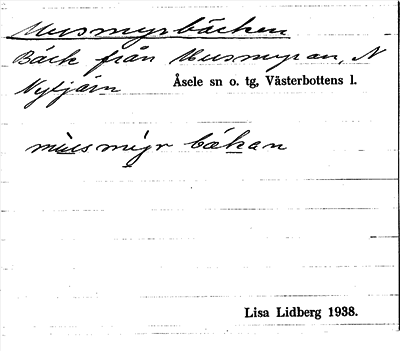 Musmyrbäcken
Bäck från Musmyran, N
Nytjärn Åsele sn o. tg, Västerbottens l.
mùusmýr bákan
Lisa Lidberg 1938.